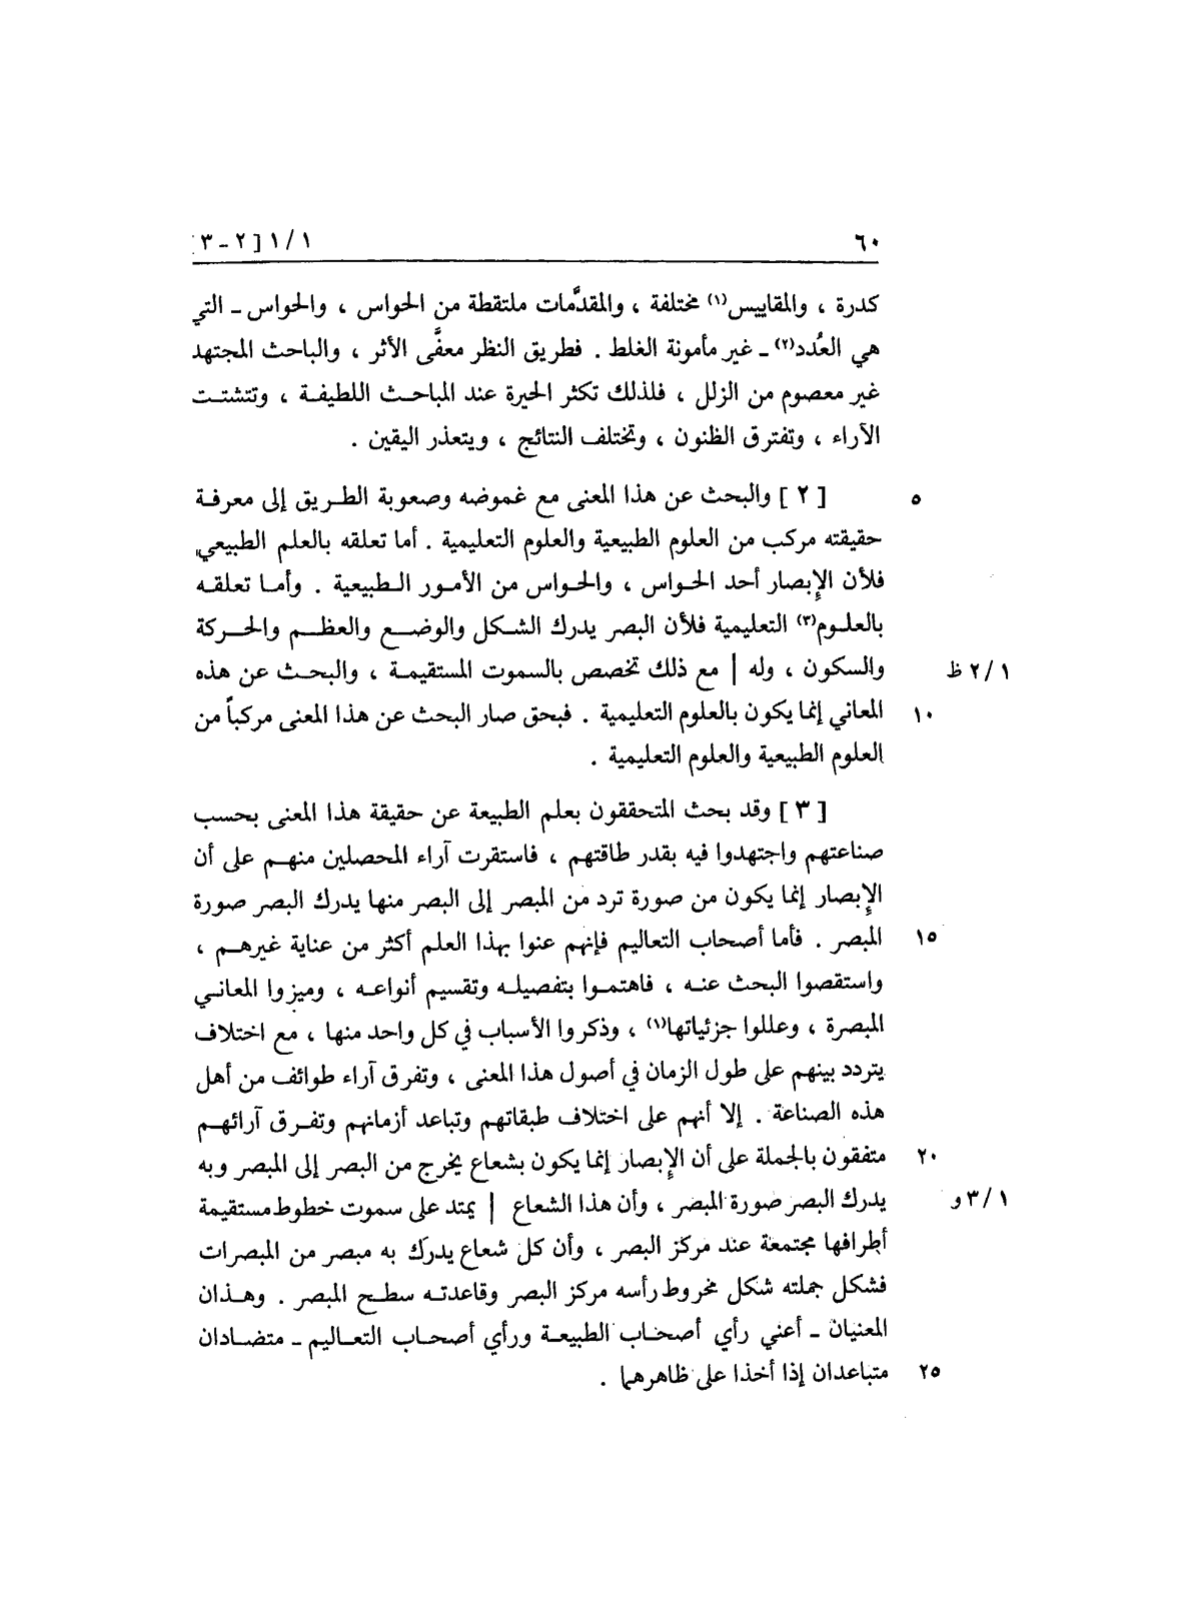 ٦٠ ١/١ [٢ - ٣]
كدرة ، والمقاييس(١) مختلفة ، والمقدَّمات ملتقطة من الحواس ، والحواس ـ التي
هي العُدد(٢) ـ غير مأمونة الغلط . فطريق النظر معفَّى الأثر ، والباحث المجتهد
غير معصوم من الزلل ، فلذلك تكثر الحيرة عند المباحث اللطيفة ، وتتشتت
الآراء ، وتفترق الظنون ، وتختلف النتائج ، ويتعذر اليقين .
٥ [ ٢ ] والبحث عن هذا المعنى مع غموضه وصعوبة الطريق إلى معرفة
حقيقته مركب من العلوم الطبيعية والعلوم التعليمية . أما تعلقه بالعلم الطبيعي
فلأن الإبصار أحد الحواس ، والحواس من الأمور الطبيعية . وأما تعلقه
بالعلوم(٣) التعليمية فلأن البصر يدرك الشكل والوضع والعظم والحركة
١/٢ ظ والسكون ، وله | مع ذلك تخصص بالسموت المستقيمة ، والبحث عن هذه
١٠ المعاني إنما يكون بالعلوم التعليمية . فبحق صار البحث عن هذا المعنى مركباً من
العلوم الطبيعية والعلوم التعليمية .
[ ٣ ] وقد بحث المتحققون بعلم الطبيعة عن حقيقة هذا المعنى بحسب
صناعتهم واجتهدوا فيه بقدر طاقتهم ، فاستقرت آراء المحصلين منهم على أن
الإبصار إنما يكون من صورة ترد من المبصر إلى البصر منها يدرك البصر صورة
١٥ المبصر . فأما أصحاب التعاليم فإنهم عنوا بهذا العلم أكثر من عناية غيرهم ،
واستقصوا البحث عنه ، فاهتموا بتفصيله وتقسيم أنواعه ، وميزوا المعاني
المبصرة ، وعللوا جزئياتها(١) ، وذكروا الأسباب في كل واحد منها ، مع اختلاف
يتردد بينهم على طول الزمان في أصول هذا المعنى ، وتفرق آراء طوائف من أهل
هذه الصناعة . إلا أنهم على اختلاف طبقاتهم وتباعد أزمانهم وتفرق آرائهم
٢٠ متفقون بالجملة على أن الإبصار إنما يكون بشعاع يخرج من البصر إلى المبصر وبه
١/٣ و يدرك البصر صورة المبصر ، وأن هذا الشعاع | يمتد على سموت خطوط مستقيمة
أطرافها مجتمعة عند مركز البصر ، وأن كل شعاع يدرك به مبصر من المبصرات
فشكل جملته شكل مخروط رأسه مركز البصر وقاعدته سطح المبصر . وهذان
المعنيان ـ أعني رأي أصحاب الطبيعة ورأي أصحاب التعاليم ـ متضادان
٢٥ متباعدان إذا أخذا على ظاهرهما .